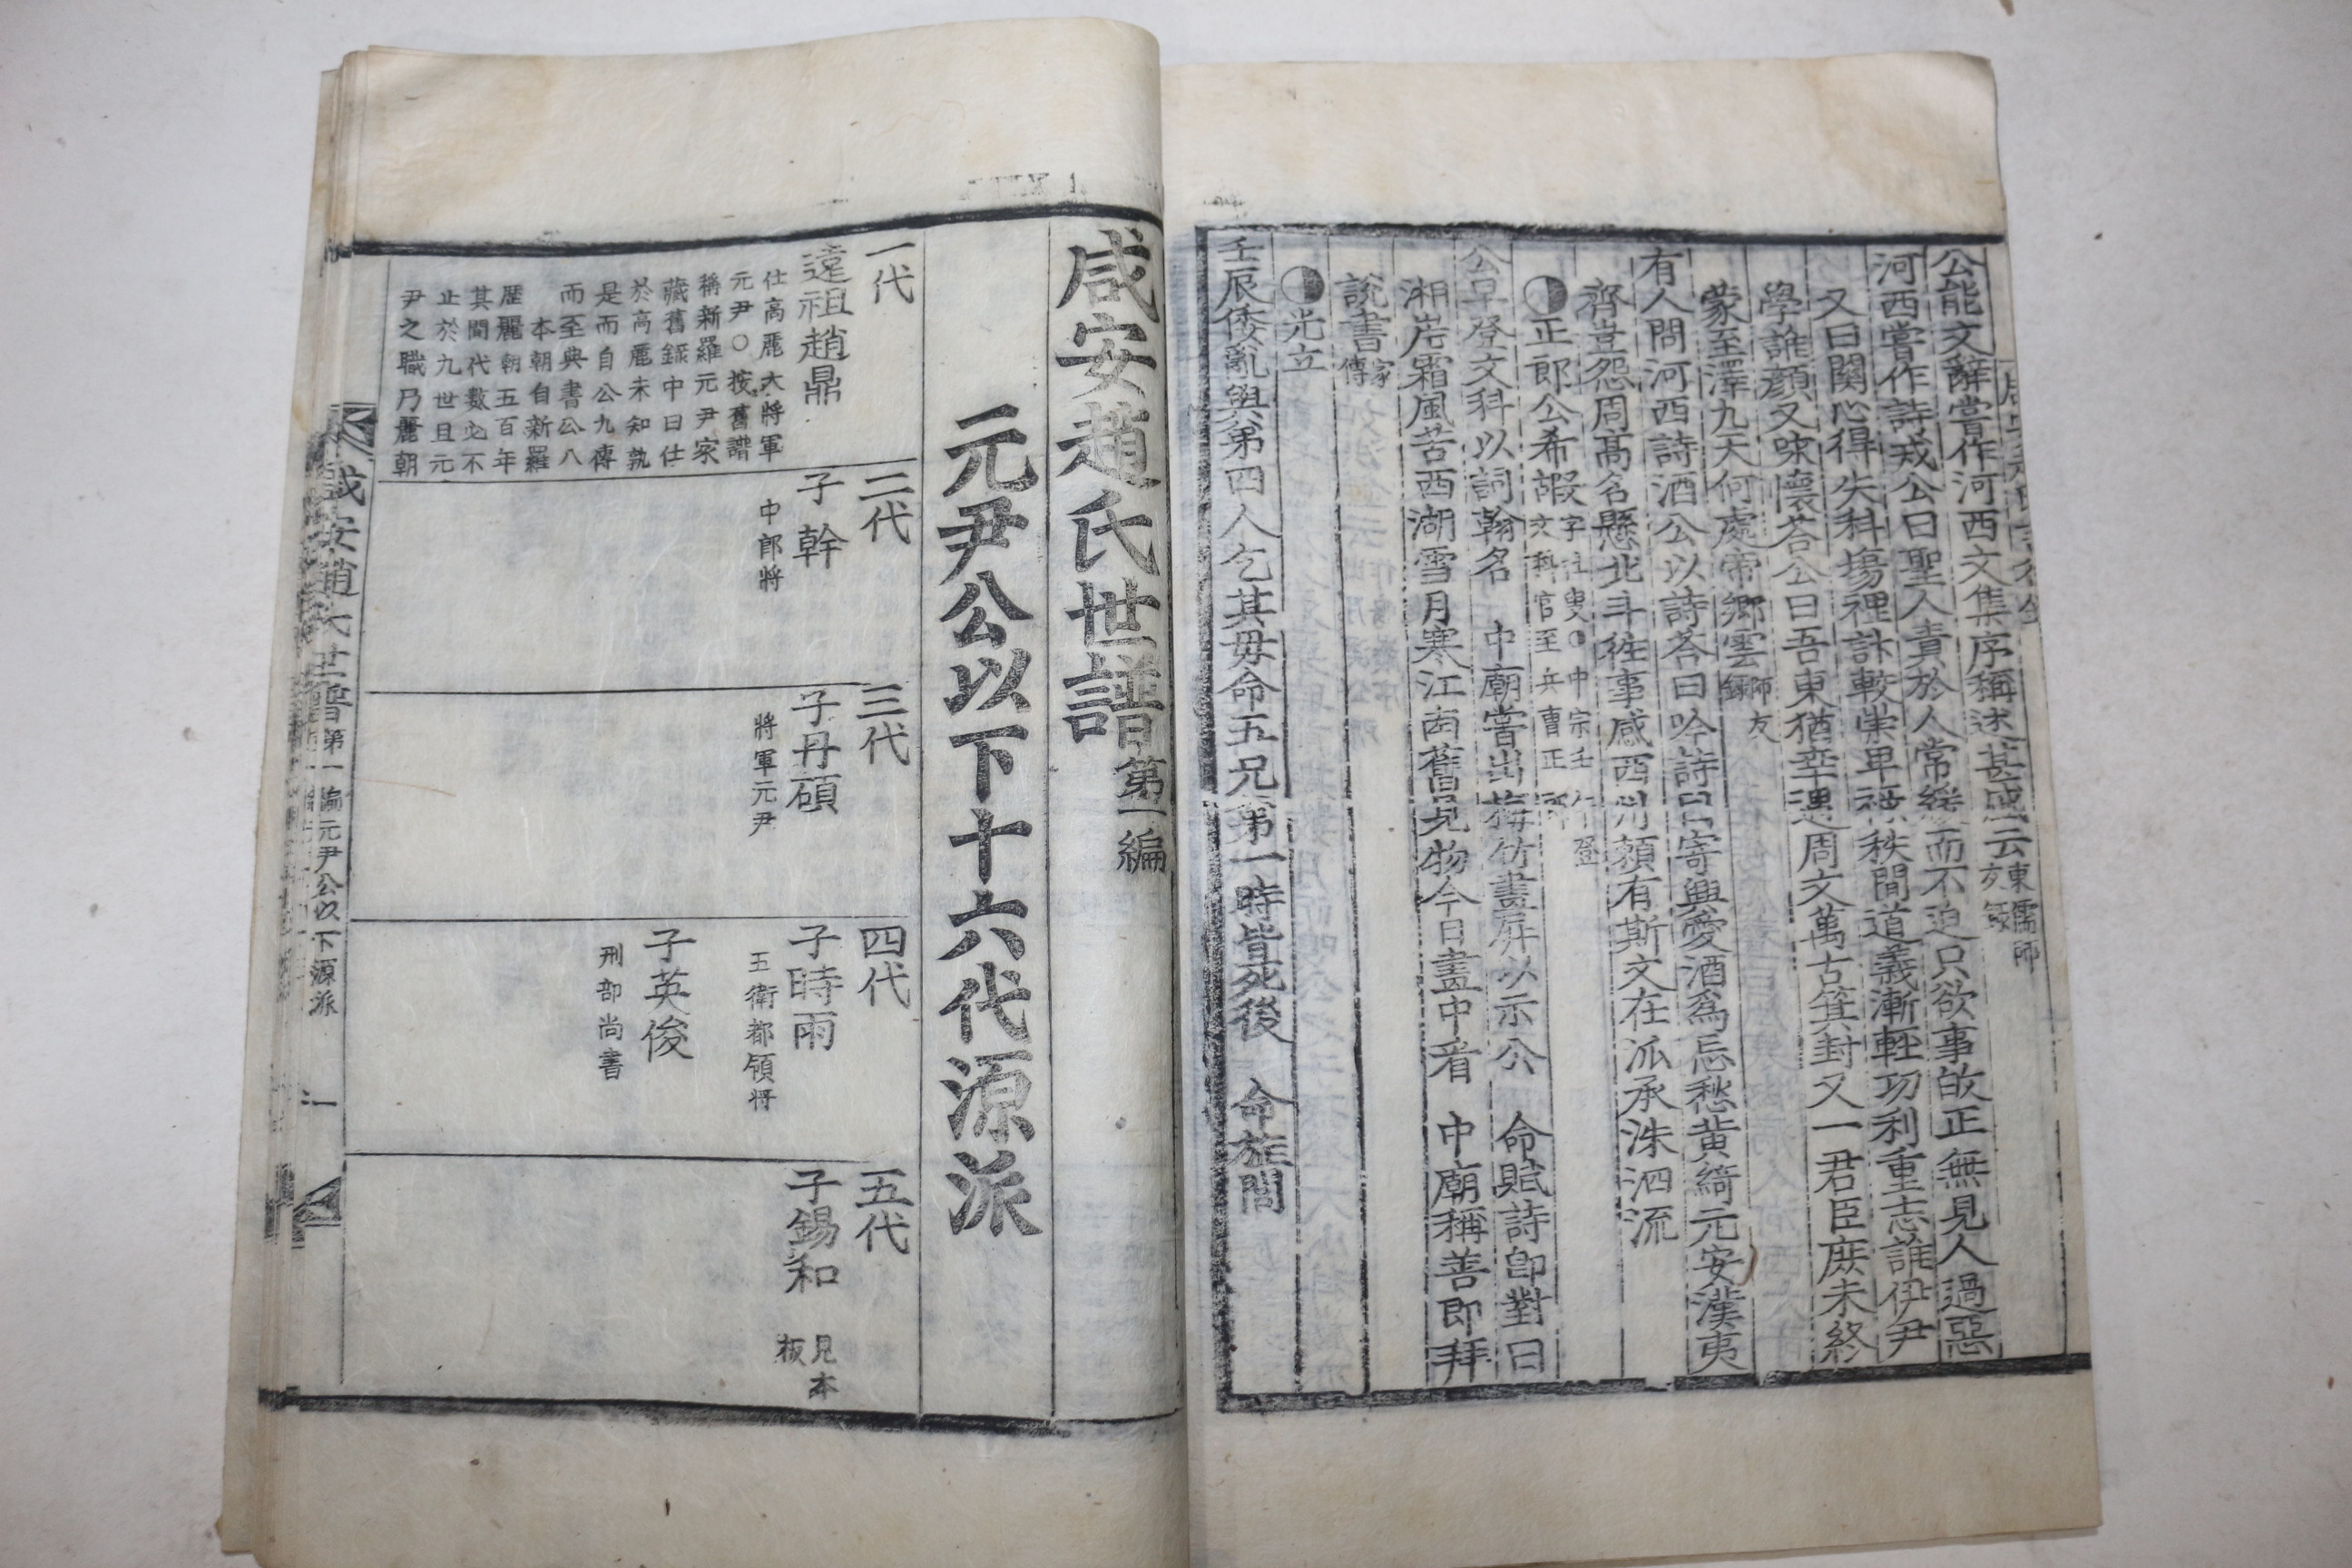 公能文辭嘗作河西文集序稱述甚盛云東儒師友錄
河西嘗作詩戒公曰聖人責於人常緩而不迫只欲事故正無見人過惡
又曰關心得失科塲裡計較崇卑秩間道義漸輕功利重志誰伊尹
學誰顔又味懷荅公曰吾東猶幸遇周文萬古箕封又一君臣庶未終
蒙至澤九天何處帝鄉雲師友錄
有人問河西詩酒公以詩荅曰吟詩曰寄興愛酒爲忘愁黃綺元安漢夷
齊豈怨周髙名懸北斗徃事感西州頼有斯文在派承洙泗流
正郎公希嘏字○中宗壬登文科官至兵曹正郎
公早登文科以詞翰名 中廟嘗出梅竹畫屛以示公 命賦詩卽對曰
湘岸霜風苦西湖雪月寒江南舊見物今日畫中看 中廟稱善即拜
說書家傳
光立
壬辰倭亂與弟四人乞其毋命五兄弟一時皆死後 命旌閭
咸安趙氏世譜第一編
元尹公以下十六代源派
一代
遠祖趙鼎
仕高麗大將軍
元尹○按舊譜
稱新羅元尹家
藏舊錄中曰仕
於高麗未知孰
是而自公九傳
而至典書公八
本朝自新羅
歷麗朝五百年
其間代數必不
止於九世且元
尹之職乃麗朝
二代
子幹
中郎將
三代
子丹碩
將軍元尹
四代
子時雨
五衛都領將
子英俊
刑部尚書
五代
子錫和
見本
板
咸安趙氏世譜第一編元尹公以下源派 一